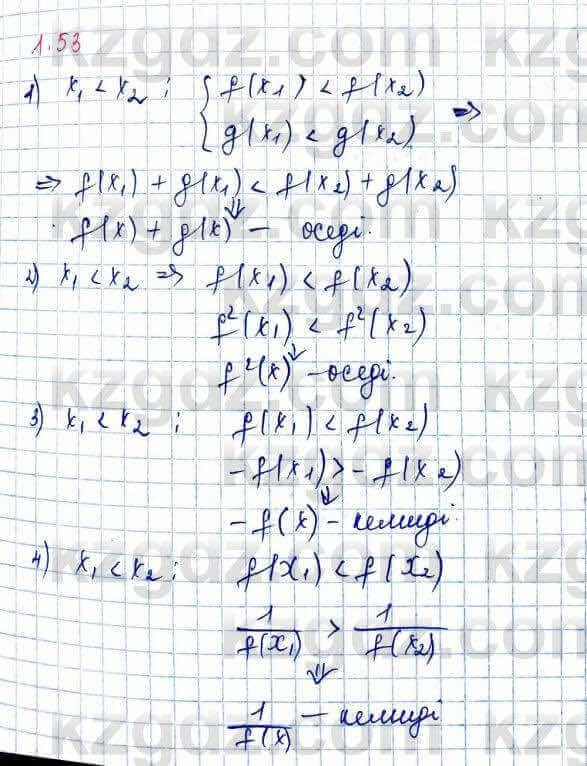 1.53
1) x₁ < x₂ ; { f(x₁) < f(x₂)
{ g(x₁) < g(x₂) ⇒
⇒ f(x₁) + g(x₁) < f(x₂) + g(x₂)
⇓
f(x) + g(x) – өседі.
2) x₁ < x₂ ⇒ f(x₁) < f(x₂)
f²(x₁) < f²(x₂)
⇓
f²(x) – өседі.
3) x₁ < x₂ ; f(x₁) < f(x₂)
-f(x₁) > -f(x₂)
⇓
-f(x) – кемиді.
4) x₁ < x₂ ; f(x₁) < f(x₂)
1/f(x₁) > 1/f(x₂)
⇓
1/f(x) – кемиді
kzgdz.com